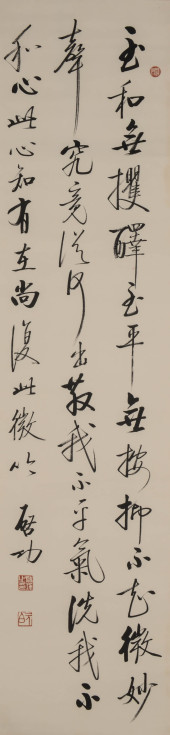 至和無攫醳至平無按抑不知微妙
聲究竟從何出散我不平氣洗我不
和心此心知有在尚復此微吟 啓功